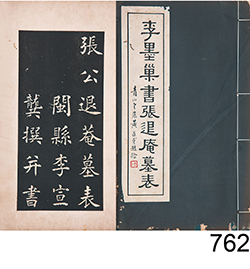 李墨巢書張退庵墓表
張公退菴墓表
閩縣李宣
龔撰并書
762